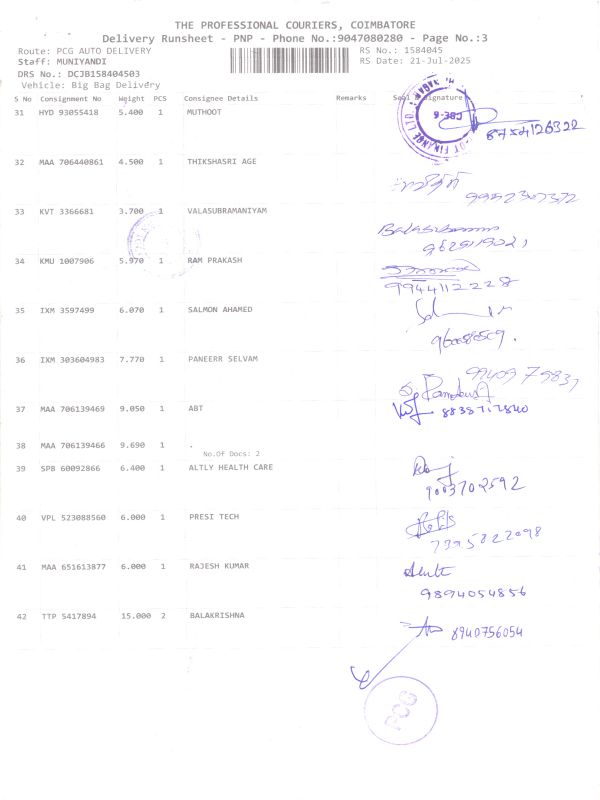 THE PROFESSIONAL COURIERS, COIMBATORE
Delivery Runsheet - PNP - Phone No.:9047080280 - Page No.:3
Route: PCG AUTO DELIVERY RS No.: 1584045
Staff: MUNIYANDI RS Date: 21-Jul-2025
DRS No.: DCJB158404503
Vehicle: Big Bag Delivery
S No Consignment No Weight PCS Consignee Details Remarks Seal & Signature
31 HYD 93055418 5.400 1 MUTHOOT
CBE-6
8754126322
32 MAA 706440861 4.500 1 THIKSHASRI AGE
9952307372
33 KVT 3366681 3.700 1 VALASUBRAMANIYAM
34 KMU 1007906 5.970 1 RAM PRAKASH
9944112228
35 IXM 3597499 6.070 1 SALMON AHAMED
36 IXM 303604983 7.770 1 PANEERR SELVAM
37 MAA 706139469 9.050 1 ABT
38 MAA 706139466 9.690 1 .
No.Of Docs: 2
39 SPB 60092866 6.400 1 ALTLY HEALTH CARE
9003702592
40 VPL 523088560 6.000 1 PRESI TECH
7395822098
41 MAA 651613877 6.000 1 RAJESH KUMAR
9894054856
42 TTP 5417894 15.000 2 BALAKRISHNA
8940756054
PCG